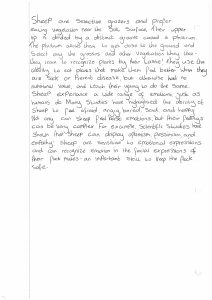 Sheep are selective grazers and prefer
eating vegetation near the soil surface. Their upper
lip is divided by a distinct groove called a philtrum.
The philtrum allows them to get close to the ground and
select any the grasses and other vegetation they like.
they learn to recognize plants by their taste. They use the
ability to eat plants that make them feel better when they
are sick or prevent disease, but otherwise had no
nutritional value, and teach their young to do the same.
Sheep experience a wide range of emotions just as
humans do. Many studies have highlighted the ability of
sheep to feel afraid, angry, bored, sad, and happy.
Not only can sheep feel these emotions, but their feelings
can be very complex. For example, scientific studies have
shown that sheep can display optimism, pessimism and
empathy. Sheep are sensitive to emotional expressions
and can recognize emotion in the facial expressions of
their flock mates - an important skill to keep the flock
safe.